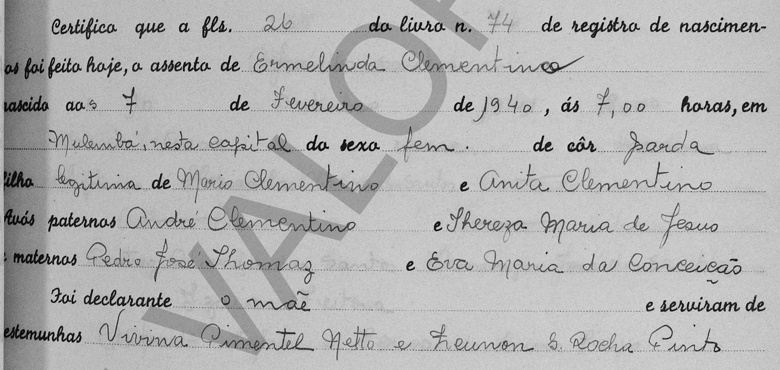 Certifico que a fls. 26 do livro n. 74 de registro de nascimen-
os foi feito hoje, o assento de Ermelinda Clementino
nascido aos 7 de Fevereiro de 1940, ás 7,00 horas, em
Mulembá, nesta capital do sexo fem. de côr parda
filha legitima de Mario Clementino e Anita Clementino
Avós paternos André Clementino e Thereza Maria de Jesus
e maternos Pedro José Thomaz e Eva Maria da Conceição
Foi declarante o mãe e serviram de
estemunhas Vivina Pimentel Netto e S. Rocha Pinto
VALOR